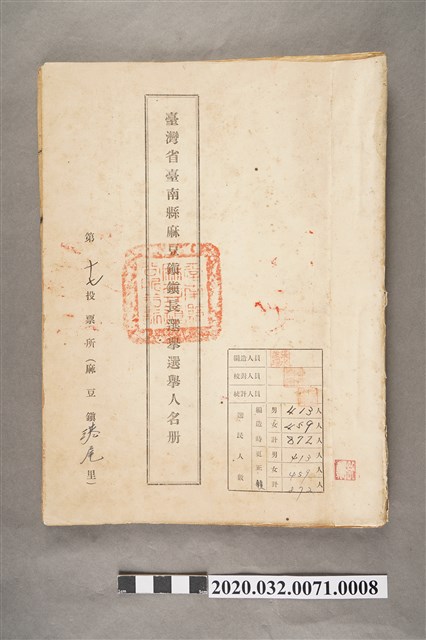 臺灣省臺南縣麻豆鎮鎮長選舉選舉人名册
第十七投票所(麻豆鎮 尾里)
編造人員
校對人員
統計人員
選民人數
編造時
男 413人
女 459人
計 872人
更正
男 413人
女 459人
計 872人
2020.032.0071.0008